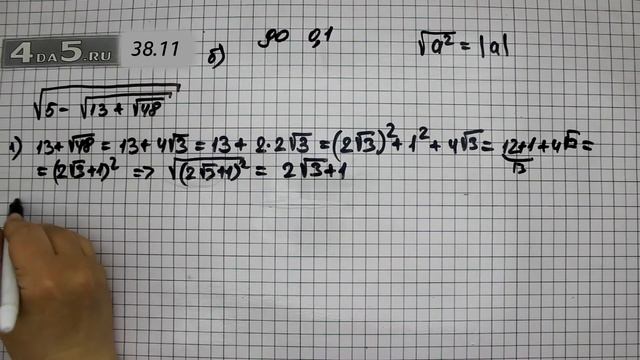 4DA5.RU 38.11 б) до 0,1 √a² = |a|
√(5 - √(13 + √48))
1) 13+√48 = 13+4√3 = 13+2·2√3 = (2√3)² + 1² + 4√3 = 12+1+4√3 =
13
= (2√3+1)² => √(2√3+1)² = 2√3+1